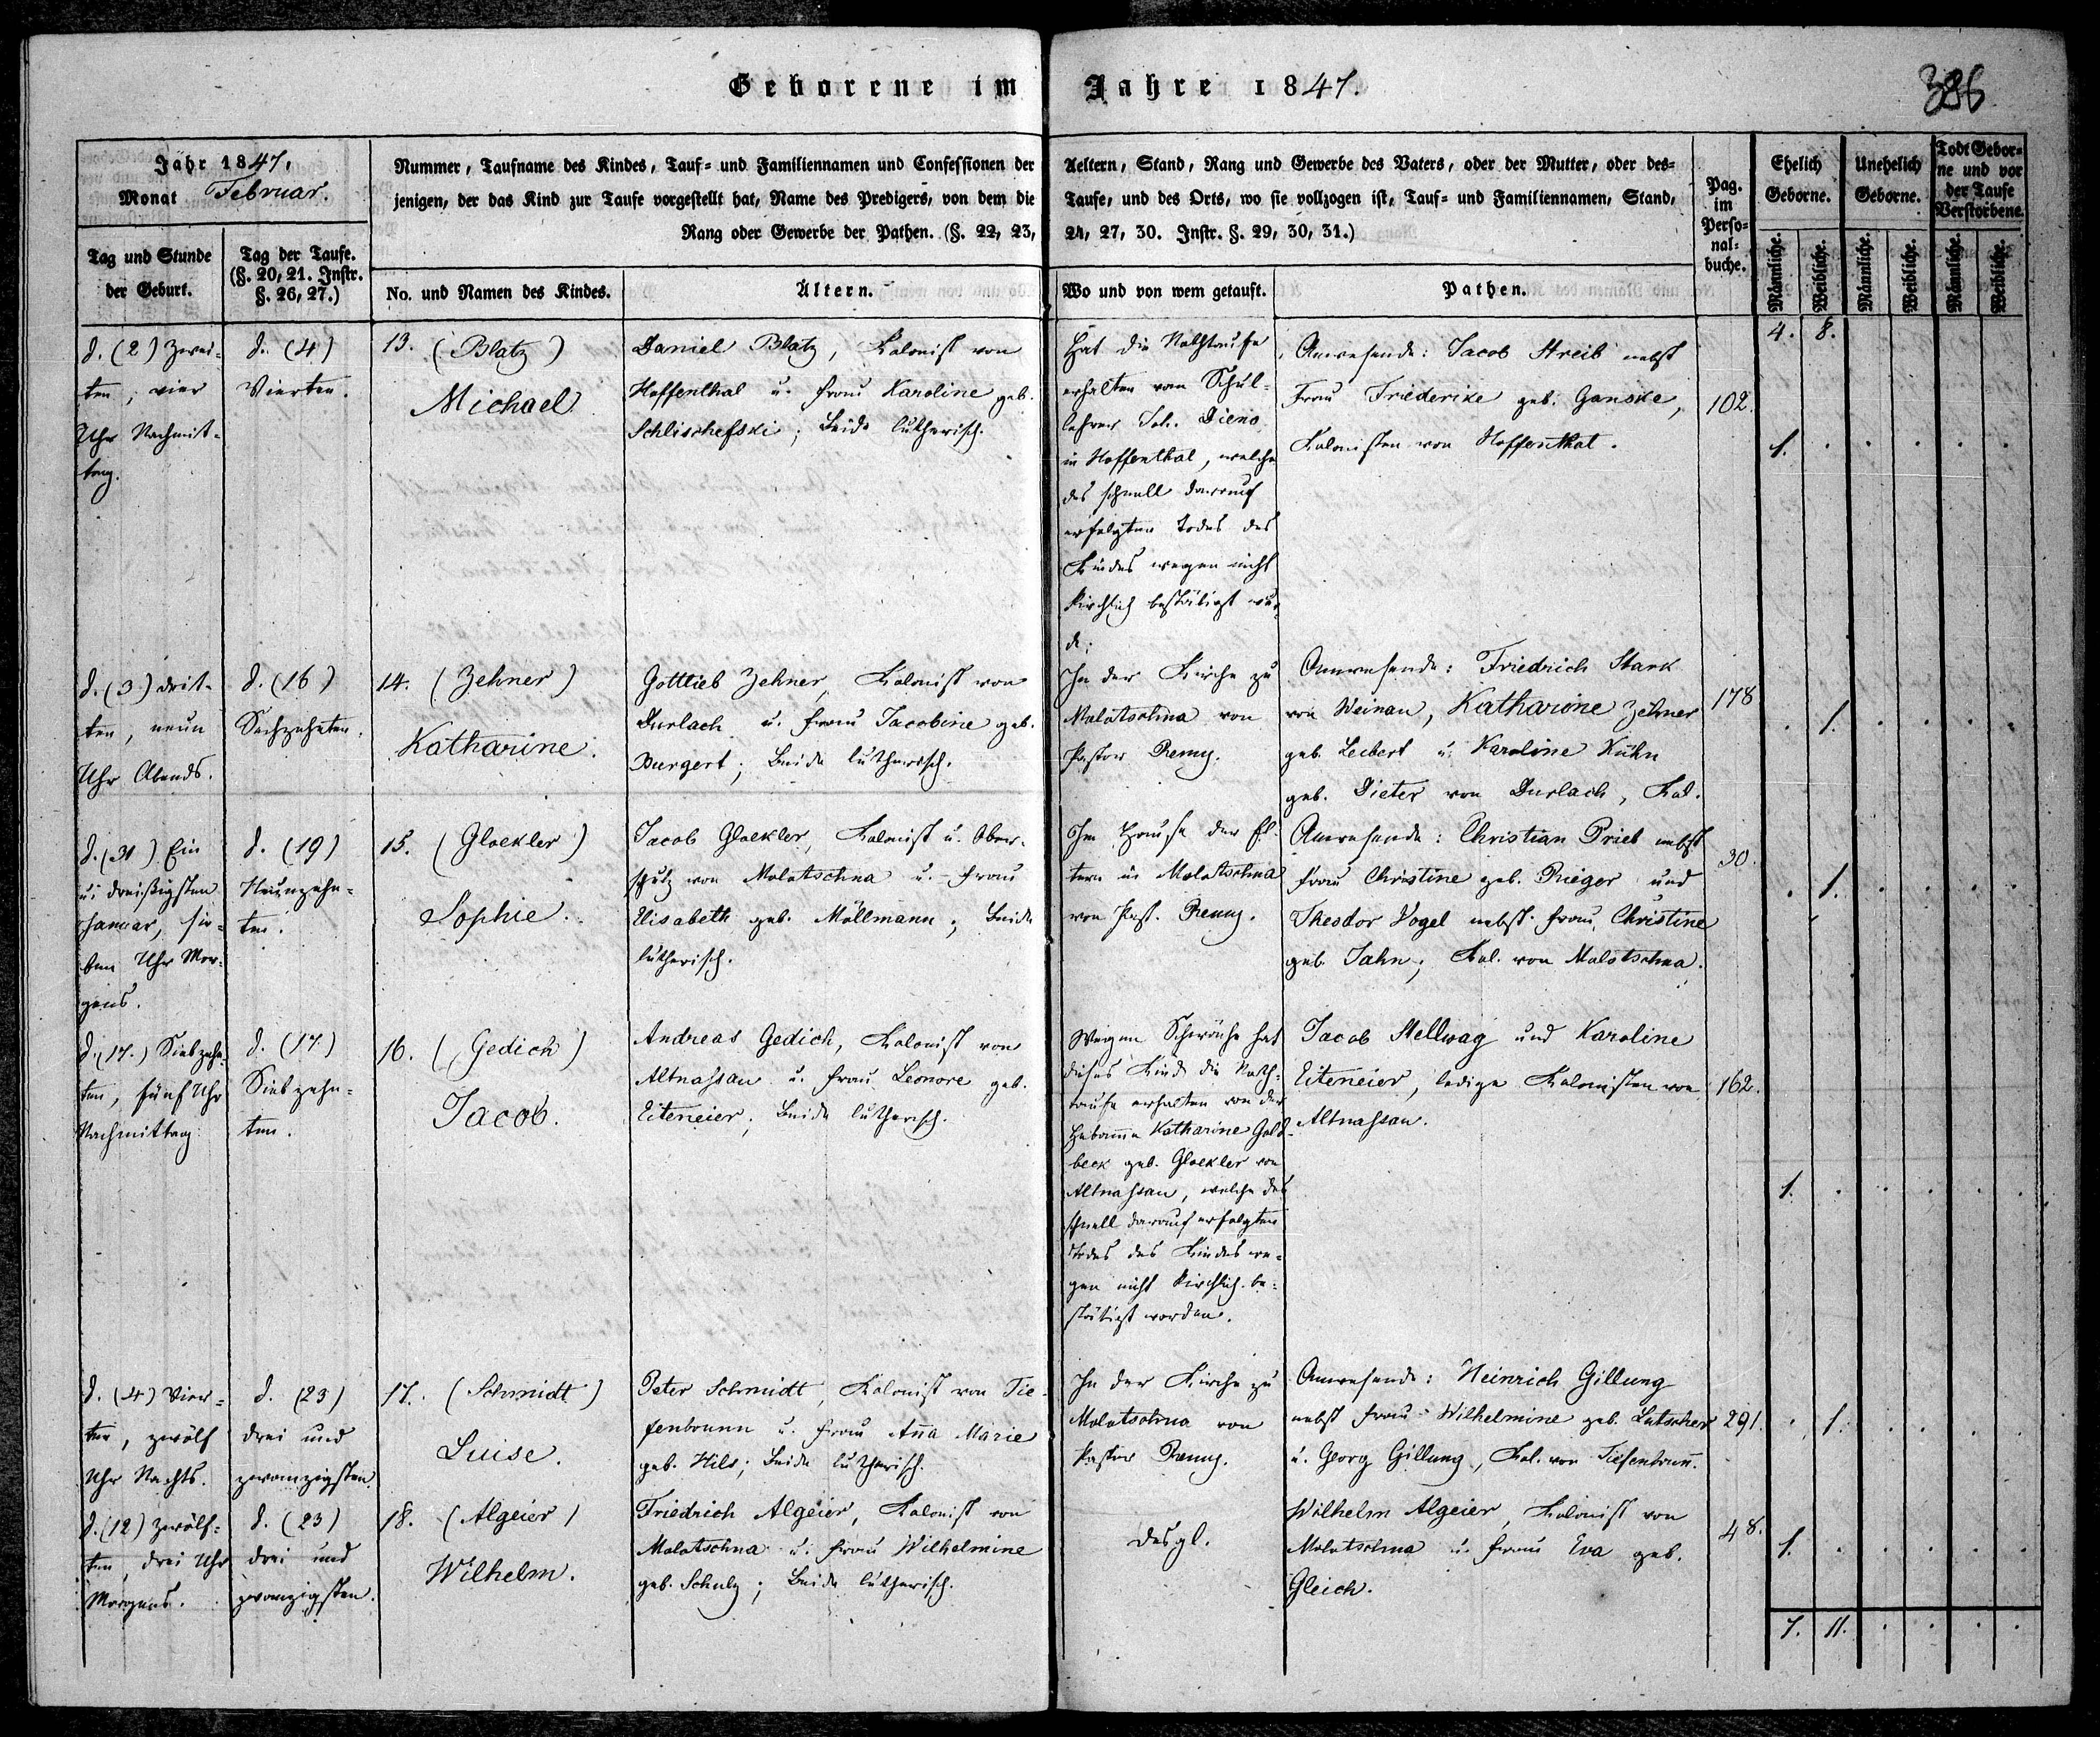 Geborene im Jahre 1847.
386
Jahr 1847.
Monat Februar.
Nummer, Taufname des Kindes, Tauf- und Familiennamen und Confessionen der Aeltern, Stand, Rang und Gewerbe des Vaters, oder der Mutter, oder des-
jenigen, der das Kind zur Taufe vorgestellt hat, Name des Predigers, von dem die Taufe, und des Orts, wo sie vollzogen ist, Tauf- und Familiennamen, Stand,
Rang oder Gewerbe der Pathen. (§. 22, 23, 24, 27, 30. Instr. §. 29, 30, 31.)
Pag.
im
Perso-
nal-
buche.
Ehelich
Geborne.
Unehelich
Geborne.
Todt Gebor-
ne und vor
der Taufe
Verstorbene.
Tag und Stunde
der Geburt.
Tag der Taufe.
(§. 20, 21. Instr.
§. 26, 27.)
No. und Namen des Kindes.
Ältern.
Wo und von wem getauft.
Pathen.
Männliche.
Weibliche.
Männliche.
Weibliche.
Männliche.
Weibliche.
4. 8.
d. (2) Zwei-
ten, vier
Uhr Nachmit-
tag.
d. (4)
Vierten.
13. (Blatz)
Michael
Daniel Blatz, Kolonist von
Hoffenthal u. Frau Karoline geb.
Schlischefski; Beide lutherisch.
Hat die Nothtaufe
erhalten vom Schul-
lehrer Joh. Dieno
in Hoffenthal, welche
des schnell darauf
erfolgten Todes des
Kindes wegen nicht
kirchlich bestätigt wur-
de.
Anwesende: Jacob Streib nebst
Frau Friederike geb. Ganske,
Kolonisten von Hoffenthal.
102.
1. . . . . .
d. (3) drit-
ten, neun
Uhr Abends.
d. (16)
Sechzehnten.
14. (Zehner)
Katharine.
Gottlieb Zehner, Kolonist von
Durlach u. Frau Jacobine geb.
Burgert; Beide lutherisch.
In der Kirche zu
Molotschna von
Pastor Remy.
Anwesende: Friedrich Stark
von Weinau, Katharine Zehner
geb. Leibert u. Karoline Kühn
geb. Dieter von Durlach, Kol.
178
. 1. . . . .
d. (31) Ein
u. dreißigsten
Januar, sie-
ben Uhr Mor-
gens.
d. (19)
Neunzehn-
ten.
15. (Gloekler)
Sophie.
Jacob Gloekler, Kolonist u. Ober-
schulz von Molotschna u. Frau
Elisabeth geb. Möllmann; Beide
lutherisch.
Im Hause der El-
tern in Molotschna
von Past. Remy.
Anwesende: Christian Prieb nebst
Frau Christine geb. Rieger und
Theodor Vogel nebst Frau Christine
geb. Jahn; Kol. von Molotschna.
30.
. 1. . . . .
d. (17.) Siebzehn-
ten, fünf Uhr
Nachmittag.
d. (17)
Siebzehn-
ten.
16. (Gedich)
Jacob.
Andreas Gedich, Kolonist von
Altnassau u. Frau Leonore geb.
Eiteneier; Beide lutherisch.
Wegen Schwäche hat
dieses Kind die Noth-
taufe erhalten von der
Hebamme Katharine Gold-
beck geb. Gloekler von
Altnassau, welche des
schnell darauf erfolgten
Todes des Kindes we-
gen nicht kirchlich be-
stätigt worden.
Jacob Stellwag und Karoline
Eiteneier, ledige Kolonisten von
Altnassau.
162.
1. . . . . .
d. (4) Vier-
ten, zwölf
Uhr Nachts.
d. (23)
drei und
zwanzigsten.
17. (Schmidt)
Luise.
Peter Schmidt, Kolonist von Tie-
fenbrunn u. Frau Anna Marie
geb. Hils; Beide lutherisch.
In der Kirche zu
Molotschna von
Pastor Remy.
Anwesende: Heinrich Gillung
nebst Frau Wilhelmine geb. Lutscher
u. Georg Gillung, Kol. von Tiefenbrunn.
291.
. 1. . . . .
d. (12) zwölf-
ten, drei Uhr
Morgens.
d. (23)
drei und
zwanzigsten.
18. (Algeier)
Wilhelm.
Friedrich Algeier, Kolonist von
Molotschna u. Frau Wilhelmine
geb. Schulz; Beide lutherisch.
desgl.
Wilhelm Algeier, Kolonist von
Molotschna u. Frau Eva geb.
Gleich.
48.
1. . . . . .
7. 11. . . . .